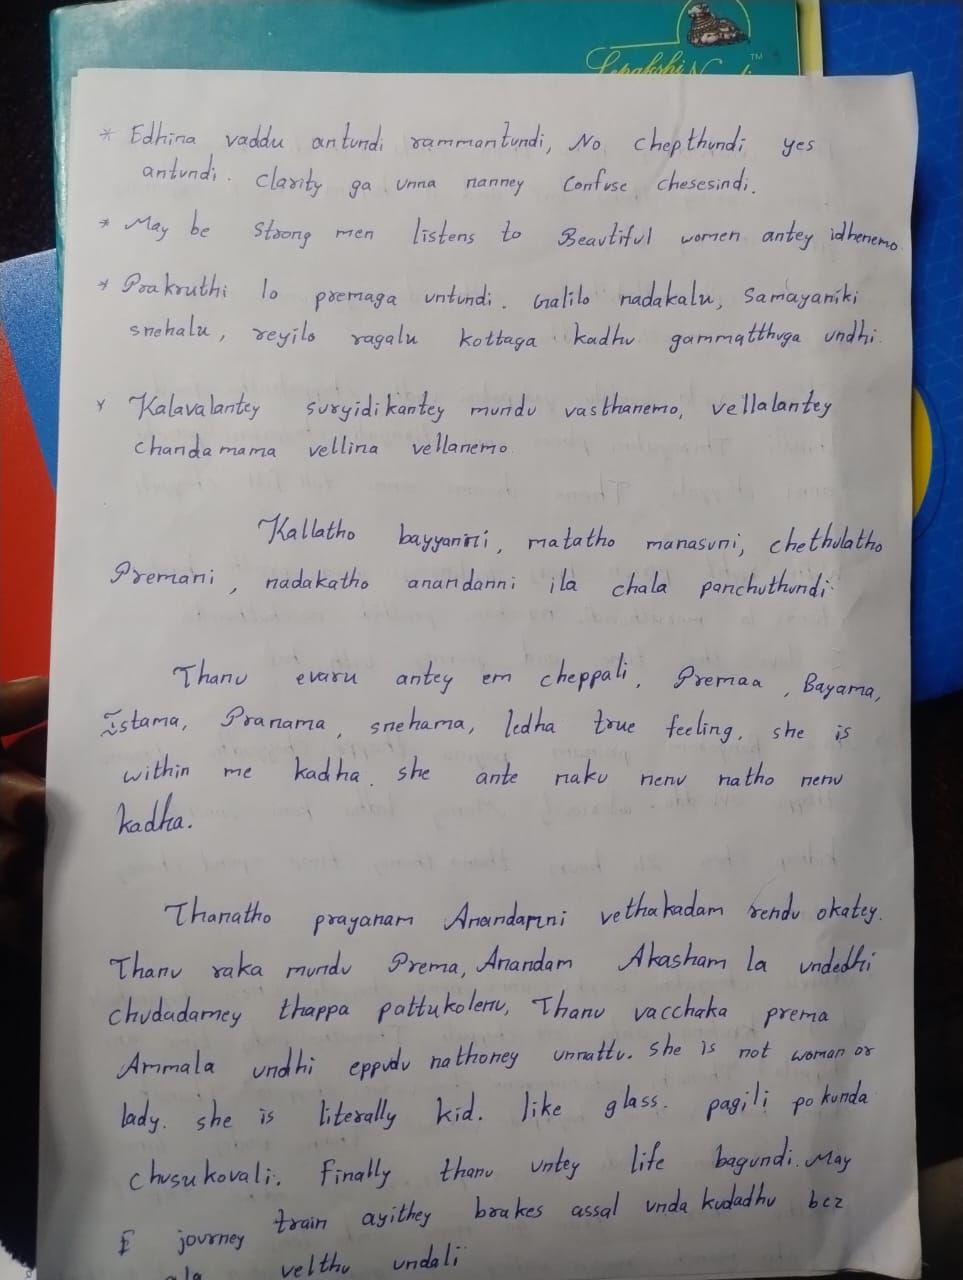 Lepakshi
TM
* Edhina vaddu antundi rammantundi, No chepthundi yes
antundi. Clarity ga unna nanney Confuse chesesindi.
* May be Strong men listens to Beautiful women antey idhenemo
* Prakruthi lo premaga untundi. Galilo nadakalu, Samayaniki
snehalu, reyilo ragalu kottaga kadhu gammatthuga undhi.
* Kalavalantey suryidikantey mundu vasthanemo, vellalantey
chandamama vellina vellanemo
Kallatho bayyanni, matatho manasuni, chethulatho
Premani, nadakatho anandanni ila chala panchuthundi.
Thanu evaru antey em cheppali. Premaa, Bayama,
Istama, Pranama, snehama, ledha true feeling. she is
within me kadha. she ante naku nenu natho nenu
kadha.
Thanatho prayanam Anandanni vethakadam rendu okatey.
Thanu raka mundu Prema, Anandam Akasham la undedhi
chudadamey thappa pattukolenu, Thanu vacchaka prema
Ammala undhi eppudu nathoney unnattu. she is not woman or
lady. she is literally kid. like glass. pagili pokunda
chusukovali. Finally thanu untey life bagundi. May
I journey train ayithey brakes assal unda kudadhu bcz
ala velthu undali